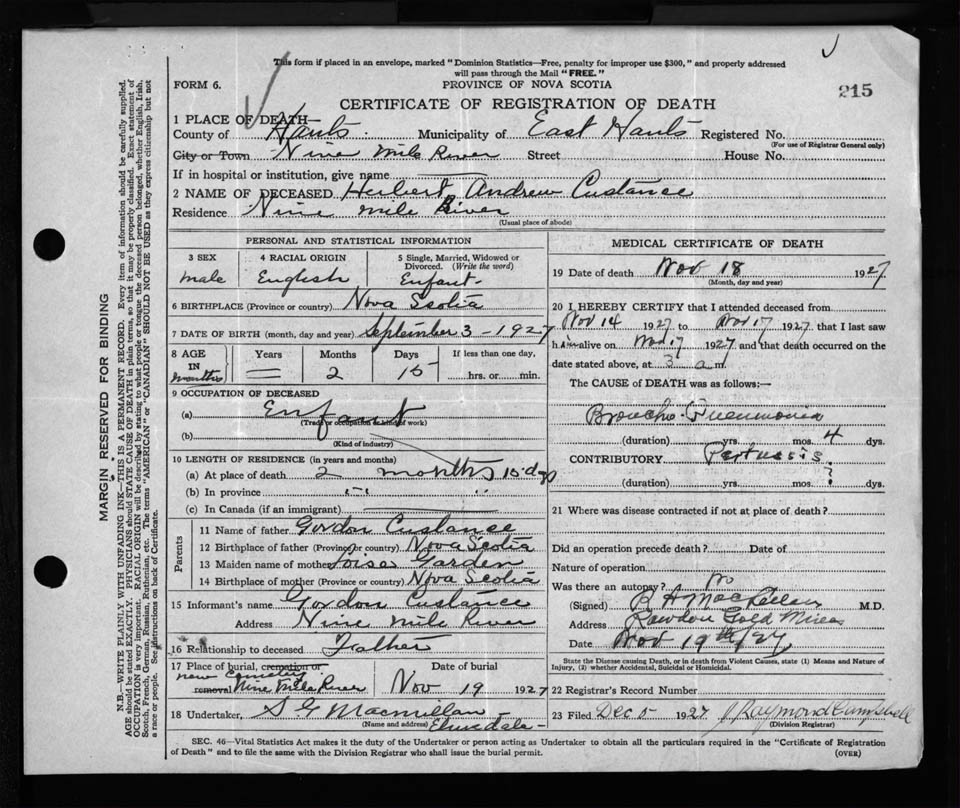 This form if placed in an envelope, marked "Dominion Statistics—Free, penalty for improper use $300," and properly addressed
will pass through the Mail "FREE."
FORM 6.
PROVINCE OF NOVA SCOTIA
215
CERTIFICATE OF REGISTRATION OF DEATH
1 PLACE OF DEATH—
County of Hants. Municipality of East Hants Registered No.
(For use of Registrar General only)
City or Town Nine Mile River Street House No.
If in hospital or institution, give name
2 NAME OF DECEASED Herbert Andrew Custance
Residence Nine Mile River
(Usual place of abode)
PERSONAL AND STATISTICAL INFORMATION
3 SEX
male
4 RACIAL ORIGIN
English
5 Single, Married, Widowed or
Divorced. (Write the word)
Enfant
6 BIRTHPLACE (Province or country) Nova Scotia
7 DATE OF BIRTH (month, day and year) September 3 - 1927
8 AGE
IN
months
Years
Months
2
Days
15
If less than one day,
hrs. or min.
9 OCCUPATION OF DECEASED
(a) Enfant
(Trade or occupation or kind of work)
(b)
(Kind of industry)
10 LENGTH OF RESIDENCE (in years and months)
(a) At place of death 2 months 15 dys
(b) In province
(c) In Canada (if an immigrant)
Parents
11 Name of father Gordon Custance
12 Birthplace of father (Province or country) Nova Scotia
13 Maiden name of mother Garden
14 Birthplace of mother (Province or country) Nova Scotia
15 Informant's name Gordon Custance
Address Nine Mile River
16 Relationship to deceased Father
17 Place of burial, cremation or
new Cemetery
removal Nine Mile River
Date of burial
Nov 19 1927
18 Undertaker, S G Macmillan
(Name and address) Elmsdale
MEDICAL CERTIFICATE OF DEATH
19 Date of death Nov 18 1927
(Month, day and year)
20 I HEREBY CERTIFY that I attended deceased from
Nov 14 1927 to Nov 17 1927 that I last saw
him alive on Nov 17 1927 and that death occurred on the
date stated above, at 3 a m.
The CAUSE OF DEATH was as follows:—
Broncho-Pneumonia
(duration) yrs. mos. 4 dys.
CONTRIBUTORY Pertussis
(duration) yrs. mos. ? dys.
21 Where was disease contracted if not at place of death?
Did an operation precede death? Date of
Nature of operation
Was there an autopsy? no
(Signed) M.D.
Address Rawdon Gold Mines
Date Nov 19th/27
State the Disease causing Death, or in death from Violent Causes, state (1) Means and Nature of
Injury, (2) whether Accidental, Suicidal or Homicidal.
22 Registrar's Record Number
23 Filed Dec 5 1927 J Raymond Campbell
(Division Registrar)
SEC. 46—Vital Statistics Act makes it the duty of the Undertaker or person acting as Undertaker to obtain all the particulars required in the "Certificate of Registration
of Death" and to file the same with the Division Registrar who shall issue the burial permit.
(OVER)
MARGIN RESERVED FOR BINDING
N.B.—WRITE PLAINLY WITH UNFADING INK—THIS IS A PERMANENT RECORD. Every item of information should be carefully supplied.
AGE should be stated EXACTLY. PHYSICIANS should STATE CAUSE OF DEATH in plain terms, so that it may be properly classified. Exact statement of
OCCUPATION is very important. RACIAL ORIGIN will be described by stating to what people or tongue the deceased person belonged, whether English, Irish,
Scotch, French, German, Russian, Ruthenian, etc. The terms "AMERICAN" or "CANADIAN" SHOULD NOT BE USED as they express citizenship but not
a race or people. See instructions on back of Certificate.